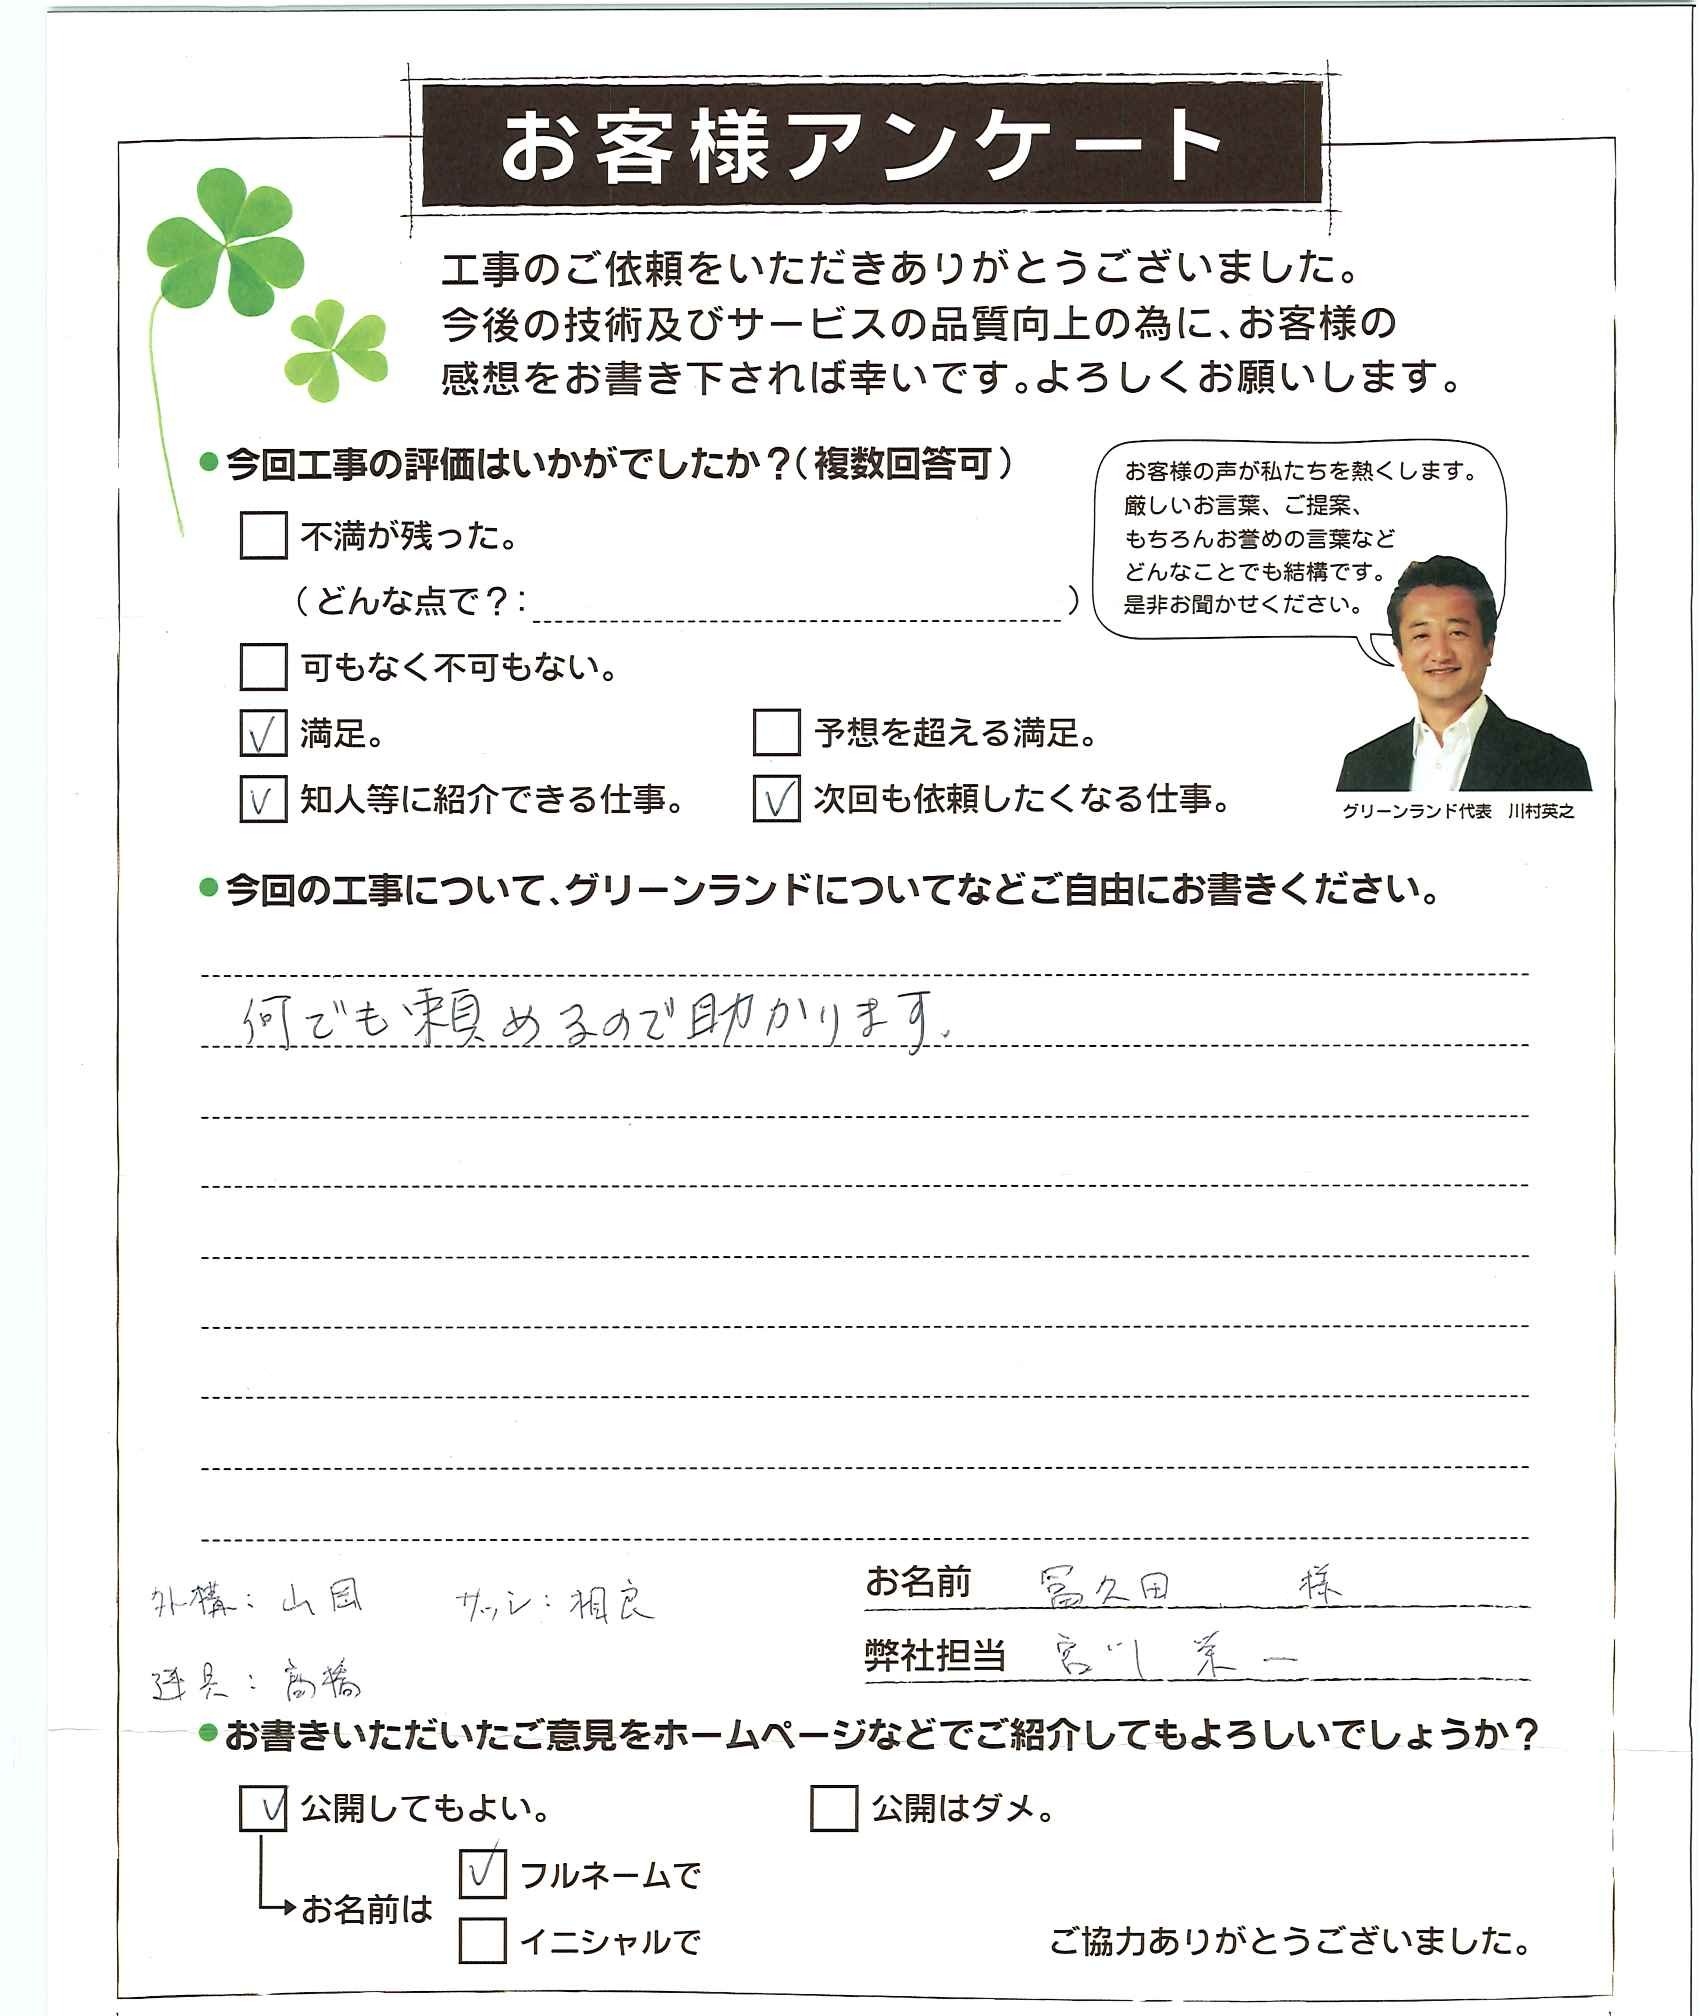 お客様アンケート
工事のご依頼をいただきありがとうございました。
今後の技術及びサービスの品質向上の為に、お客様の
感想をお書き下されば幸いです。よろしくお願いします。
●今回工事の評価はいかがでしたか？（複数回答可）
不満が残った。
（どんな点で？：　）
可もなく不可もない。
満足。
予想を超える満足。
知人等に紹介できる仕事。
次回も依頼したくなる仕事。
お客様の声が私たちを熱くします。
厳しいお言葉、ご提案、
もちろんお誉めの言葉など
どんなことでも結構です。
是非お聞かせください。
グリーンランド代表　川村英之
●今回の工事について、グリーンランドについてなどご自由にお書きください。
何でも頼めるので助かります。
外構：山岡　サッシ：相良
建具：高橋
お名前　冨久田　様
弊社担当　宮川　栄一
●お書きいただいたご意見をホームページなどでご紹介してもよろしいでしょうか？
公開してもよい。
公開はダメ。
お名前は
フルネームで
イニシャルで
ご協力ありがとうございました。